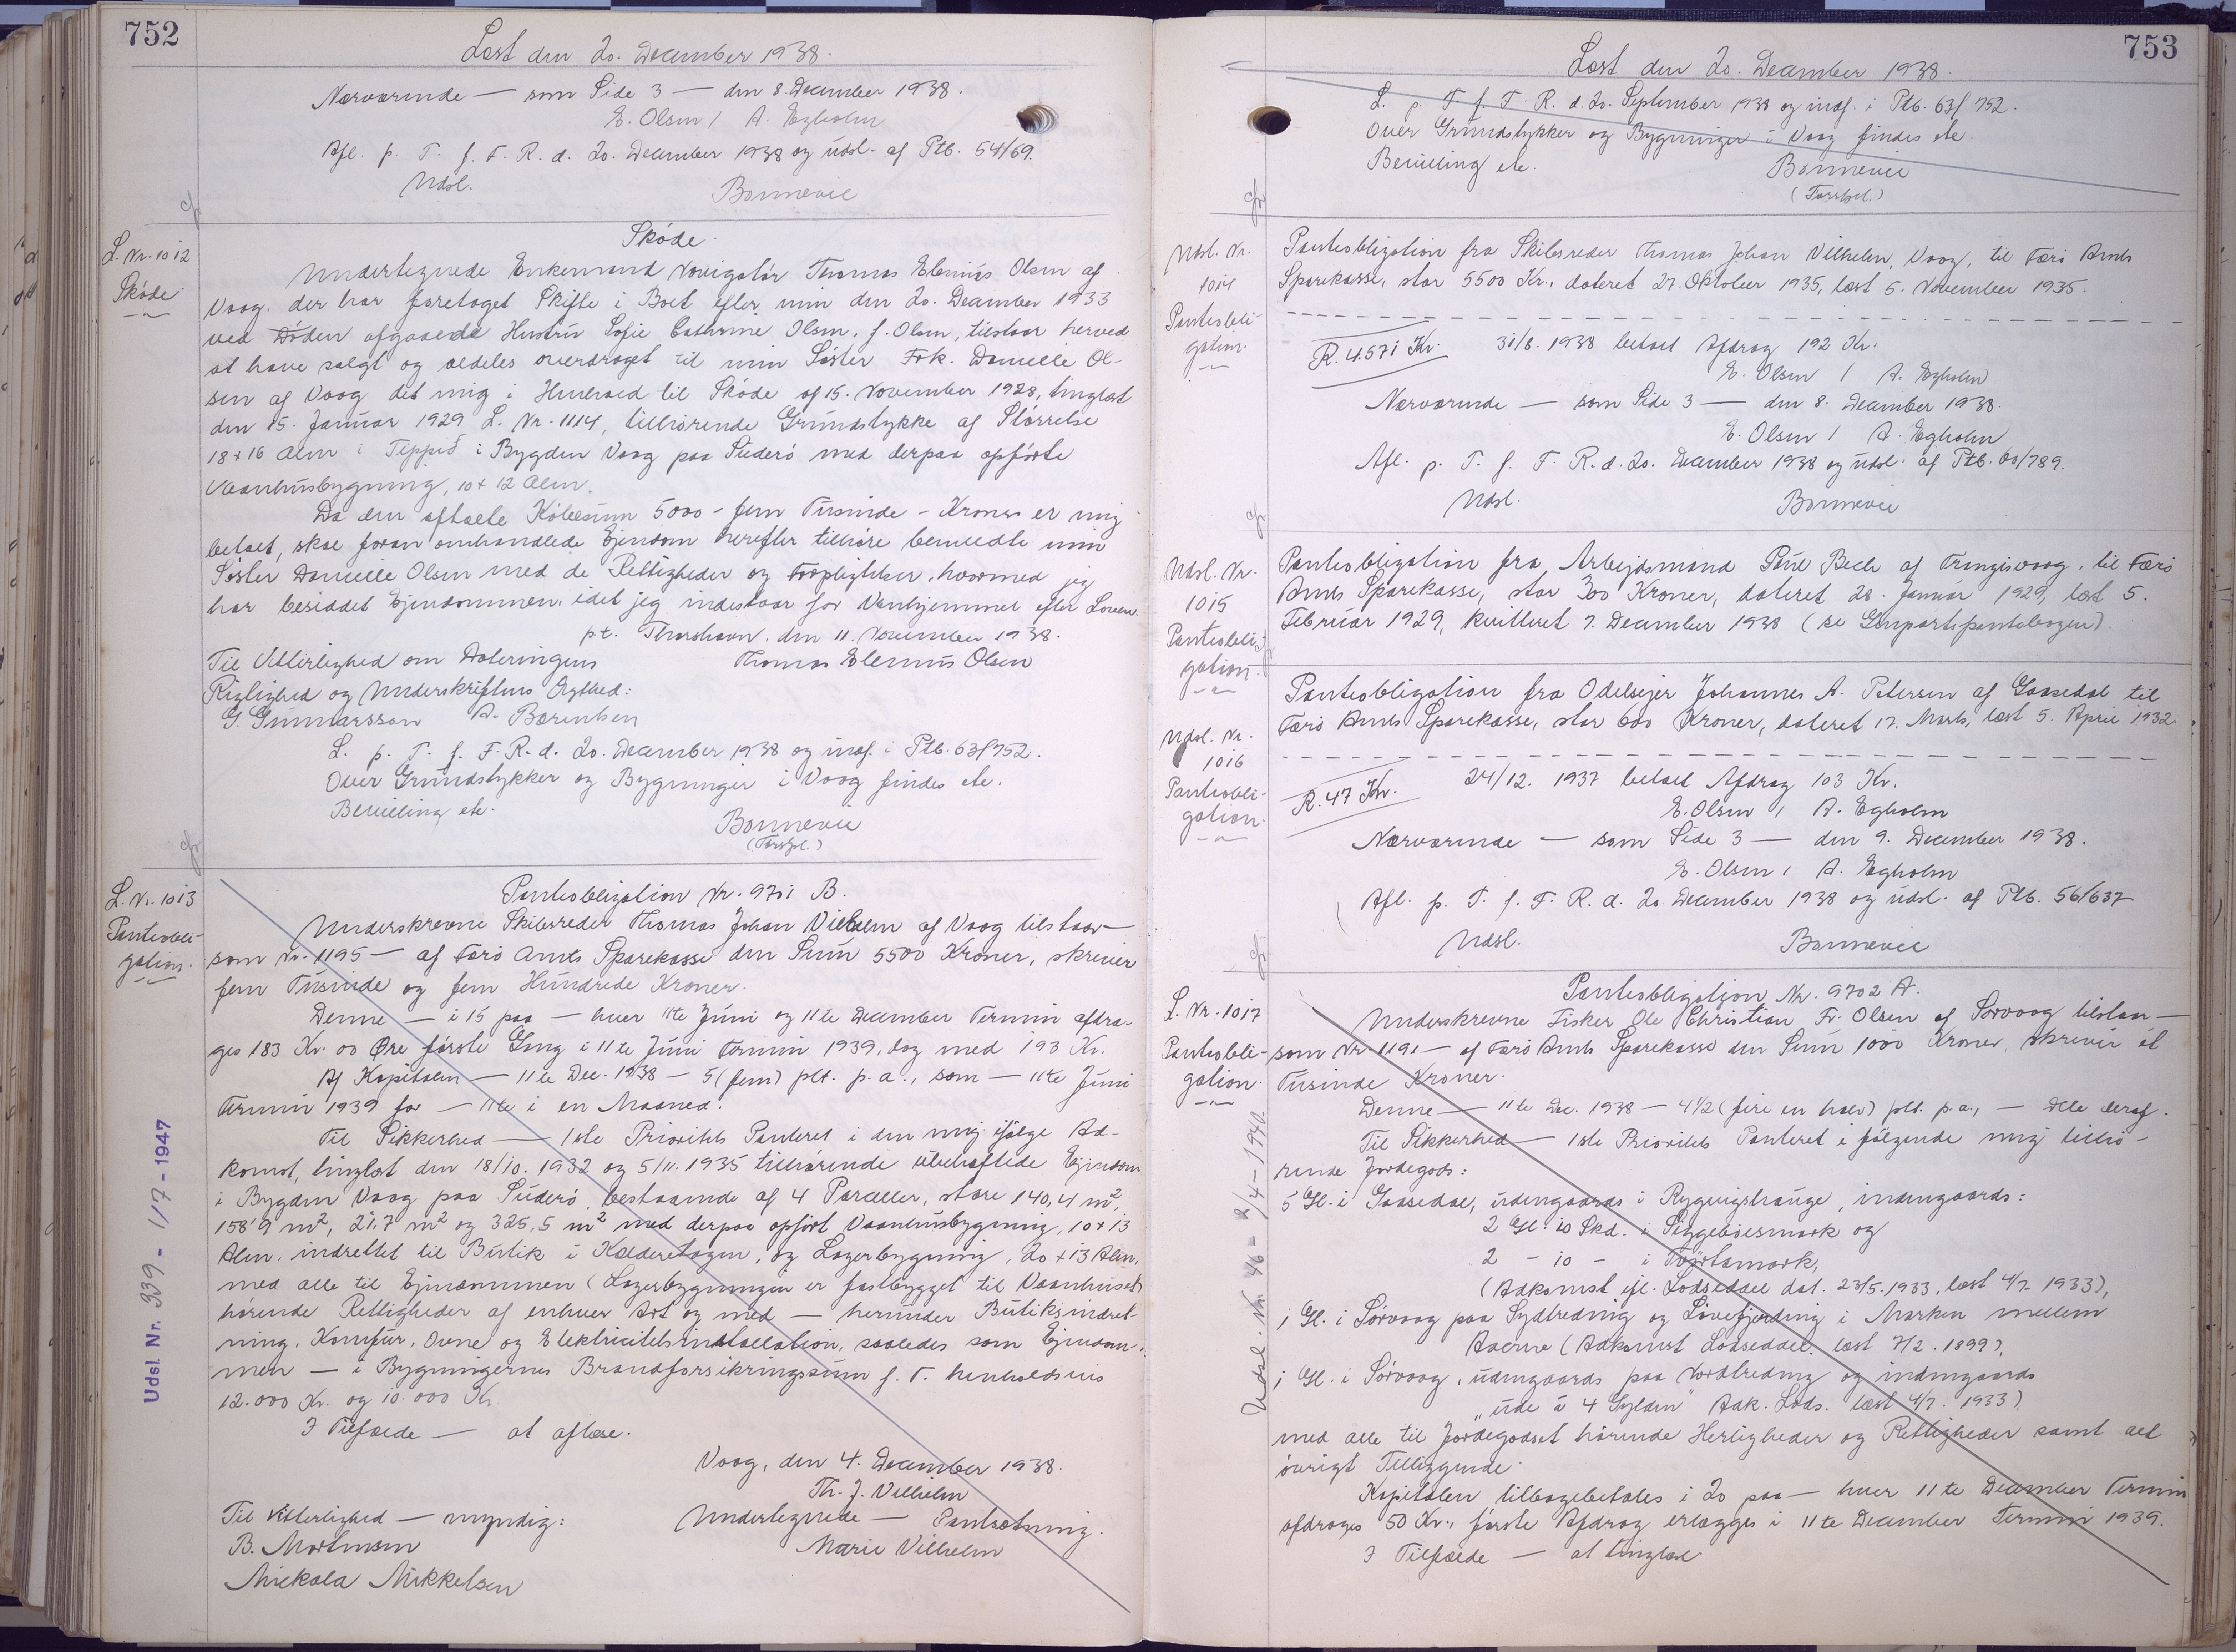 752
Læst den 20. December 1938.
Nærværende — som Side 3 — den 8. December 1938.
E. Olsen / A. Egholm
Afl. p. T. f. F. R. d. 20. December 1938 og udsl. af Ptb. 54/69.
Udsl. Bonnevie
L. Nr. 1012
Skøde
Skøde.
Undertegnede Enkemand Navigatør Thomas Elenius Olsen af
Vaag, der har foretaget Skifte i Boet efter min den 20. December 1933
ved Døden afgaaede Hustru Sofie Cathrine Olsen, f. Olsen, tilstaar herved
at have solgt og aldeles overdraget til min Søster Frk. Danielle Ol-
sen af Vaag det mig i Henhold til Skøde af 15. November 1928, tinglæst
den 15. Januar 1929 L. Nr. 1114, tilhørende Grundstykke af Størrelse
18 x 16 Alen i Teppið i Bygden Vaag paa Suderø med derpaa opførte
Vaanhusbygning, 10 x 12 Alen.
Da den aftalte Købesum 5000 - fem Tusinde - Kroner er mig
betalt, skal foran omhandlede Ejendom herefter tilhøre bemeldte min
Søster Danielle Olsen med de Rettigheder og Forpligtelser, hvormed jeg
har besiddet Ejendommen, idet jeg indestaar for Vanhjemmel efter Loven.
pt. Thorshavn, den 11. November 1938.
Til Vitterlighed om Dateringens Thomas Elenius Olsen
Rigtighed og Underskriftens Ægthed:
G. Gunnarsson A. Bærentsen
L. p. T. f. F. R. d. 20. December 1938 og indf. i Ptb. 63/752.
Over Grundstykker og Bygninger i Vaag findes etc.
Bevilling etc.
Bonnevie
(Forstpl.)
L. Nr. 1013
Panteobli-
gation.
Panteobligation Nr. 9701 B.
Underskrevne Skibsreder Thomas Johan Vilhelm af Vaag tilstaar —
som Nr. 1195 — af Færø Amts Sparekasse den Sum 5500 Kroner, skriver
fem Tusinde og fem Hundrede Kroner.
Denne — i 15 paa — hver 11te Juni og 11te December Termin afdra-
ges 183 Kr. 00 Øre første Gang i 11te Juni Termin 1939, dog med 193 Kr.
Af Kapitalen — 11te Dec. 1938 — 5 (fem) pct. p. a., som — 11te Juni
Termin 1939 for — 11te i en Maaned.
Til Sikkerhed — 1ste Prioritets Panteret i den mig ifølge Ad-
komst, tinglæst den 18/10. 1932 og 5/11. 1935 tilhørende ubehæftede Ejendom
i Bygden Vaag paa Suderø, bestaaende af 4 Parceller, store 140,4 m²,
158,9 m², 21,7 m² og 325,5 m² med derpaa opført Vaanhusbygning, 10 x 13
Alen, indrettet til Butik i Kælderetagen, og Lagerbygning, 20 x 13 Alen,
med alle til Ejendommen (Lagerbygningen er fastbygget til Vaanhuset)
hørende Rettigheder af enhver Art og med — herunder Butiksindret-
ning, Komfur, Ovne og Elektricitetsinstallation, saaledes som Ejendom-
men — i Bygningernes Brandforsikringssum f. T. henholdsvis
12.000 Kr. og 10.000 Kr.
I Tilfælde — at aflæse.
Vaag, den 4. December 1938.
Th. J. Vilhelm
Til Vitterlighed — myndig: Undertegnede — Pantsætning.
B. Mortensen Marie Vilhelm
Mickala Mikkelsen
Udsl. Nr. 939 - 1/7 - 1947
753
Læst den 20. December 1938.
L. p. T. f. F. R. d. 20. September 1938 og indf. i Ptb. 63/752.
Over Grundstykker og Bygninger i Vaag findes etc.
Bevilling etc. Bonnevie
(Forstpl.)
Udsl. Nr.
1014
Panteobli-
gation.
Panteobligation fra Skibsreder Thomas Johan Vilhelm, Vaag, til Færø Amts
Sparekasse, stor 5500 Kr., dateret 27. Oktober 1935, læst 5. November 1935.
R. 4571 Kr. 31/8. 1938 betalt Afdrag 192 Kr.
E. Olsen / A. Egholm
Nærværende — som Side 3 — den 8. December 1938.
E. Olsen / A. Egholm
Afl. p. T. f. F. R. d. 20. December 1938 og udsl. af Ptb. 60/789.
Udsl. Bonnevie
Udsl. Nr.
1015
Panteobli-
gation.
Panteobligation fra Arbejdsmand Poul Bech af Frongisvaag, til Færø
Amts Sparekasse, stor 300 Kroner, dateret 28. Januar 1929, læst 5.
Februar 1929, kvitteret 7. December 1938 (se Genpartspantebogen).
Udsl. Nr.
1016
Panteobli-
gation.
Panteobligation fra Odelsejer Johannes A. Petersen af Gaasedal til
Færø Amts Sparekasse, stor 600 Kroner, dateret 17. Marts, læst 5. April 1932.
R. 47 Kr. 24/12. 1937 betalt Afdrag 103 Kr.
E. Olsen / A. Egholm
Nærværende — som Side 3 — den 9. December 1938.
E. Olsen / A. Egholm
Afl. p. T. f. F. R. d. 20 December 1938 og udsl. af Ptb. 56/637
Udsl. Bonnevie
L. Nr. 1017
Panteobli-
gation.
Panteobligation Nr. 9702 A.
Underskrevne Fisker Ole Christian Fr. Olsen af Sørvaag tilstaar —
som Nr. 1191 — af Færø Amts Sparekasse den Sum 1000 Kroner, skriver et
Tusinde Kroner.
Denne — 11te Dec. 1938 — 4 1/2 (fire en halv) pct. p. a., — alle deraf.
Til Sikkerhed — 1ste Prioritets Panteret i følgende mig tilhø-
rende Jordegods:
5 Gl. i Gaasedal, udengaards i Rygvigshauge, indengaards:
2 Gl. 10 Skd. i Siggebøesmork og
2 - 10 - i
(Adkomst ifl. Lodseddel dat. 23/5. 1933, læst 4/7 1933),
1 Gl. i Sørvaag paa Sydtrednig og Løvefjerding i Marken mellem
Aaerne (Adkomst Lodseddel, læst 7/2. 1899),
1 Gl. i Sørvaag, udengaards paa Nordtreding og indengaards
„ude á 4 Gylden" Adk. Lods. læst 4/7. 1933)
med alle til Jordegodset hørende Herligheder og Rettigheder samt alt
øvrigt Tilliggende.
Kapitalen tilbagebetales i 20 paa — hver 11te December Termin
afdrages 50 Kr., første Afdrag erlægges i 11te December Termin 1939.
I Tilfælde — at tinglæse
Udsl. Nr. 46 - 2/4 - 1940.